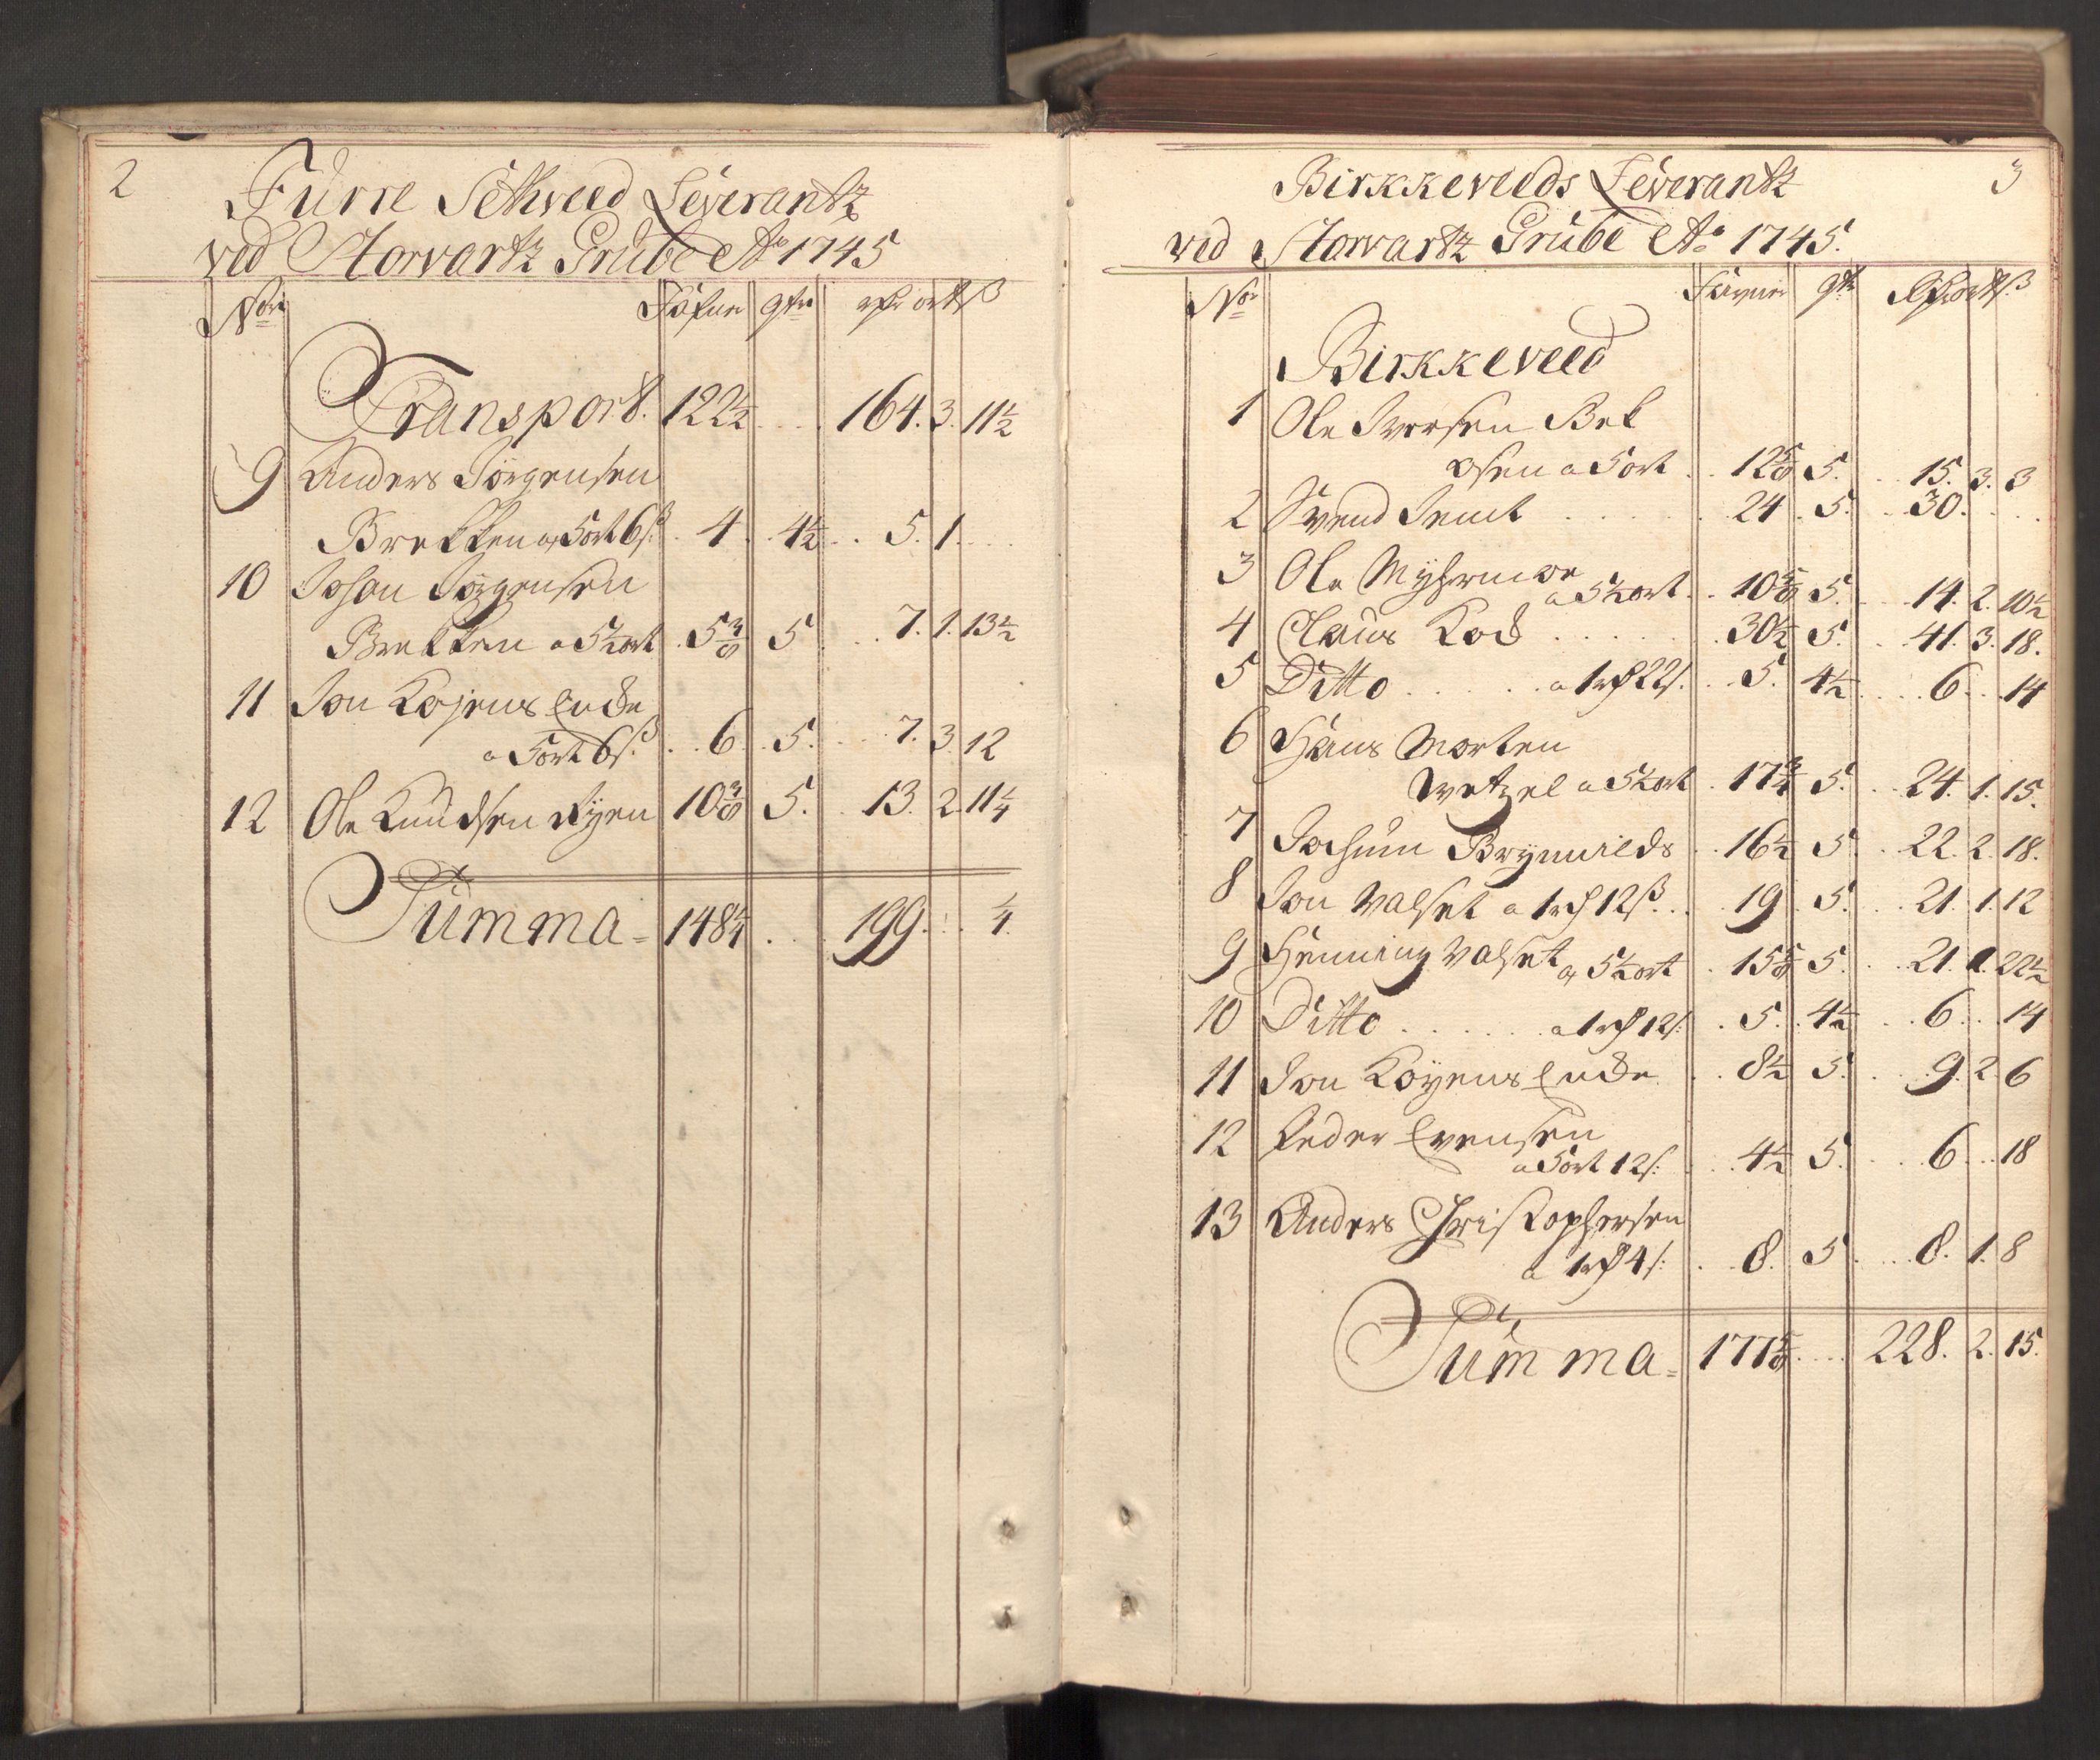 2
Furre Setweed Leverantz
ved Storvartz Grube Ao 1745
No Fafne qtr rdr ort ß
Transport. 122½ 164. 3. 11½
9 Anders Jörgensen
Bretten a 5 ort 6 ß. 4 4½ 5. 1.
10 Johan Jörgensen
Bretten a 5½ ort 5⅜ 5 7. 1. 13½
11 Jon Kojens Ende
a 5 ort 6 ß. 6 5. 7. 3 12
12 Ole Knudsen Ryen 10⅜ 5. 13. 2. 11¼
Summa = 148¼ 199. ¼
3
Birkkeveeds Leverantz
ved Storvartz Grube Ao 1745.
No Favner qtr Rdr ort ß
Birkkeveed
1 Ole Iversen Bek
osen a 5 ort 12⅝ 5. 15. 3. 3
2 Svend 24 5. 30.
3 Ole Myhrmoe
a 5½ ort 10⅝ 5. 14. 2. 10½
4 Claus Kod 30½ 5. 41. 3. 18.
5 Ditto a 1 rd 22 ß. 5. 4½ 6 14
6 Hans Morten
Wetzel a 5½ ort 17¾ 5. 24. 1. 15.
7 Jochum Brynnilds 16½ 5. 22. 2. 18.
8 Jon Valset a 1 rd 12 ß. 19 5. 21. 1. 12
9 Henning Valset a 5½ ort 15⅝ 5. 21. 1. 22½
10 Ditto a 1 rd 12 ß. 5. 4½ 6 14
11 Jon Koyens Ende 8½ 5. 9. 2 6
12 Peder Evensen
a 5 ort 12 ß. 4½ 5. 6 18
13 Anders Christophersen
a 1 rd 4 ß. 8. 5 8. 1. 8
Summa = 177⅝ 228. 2. 15.